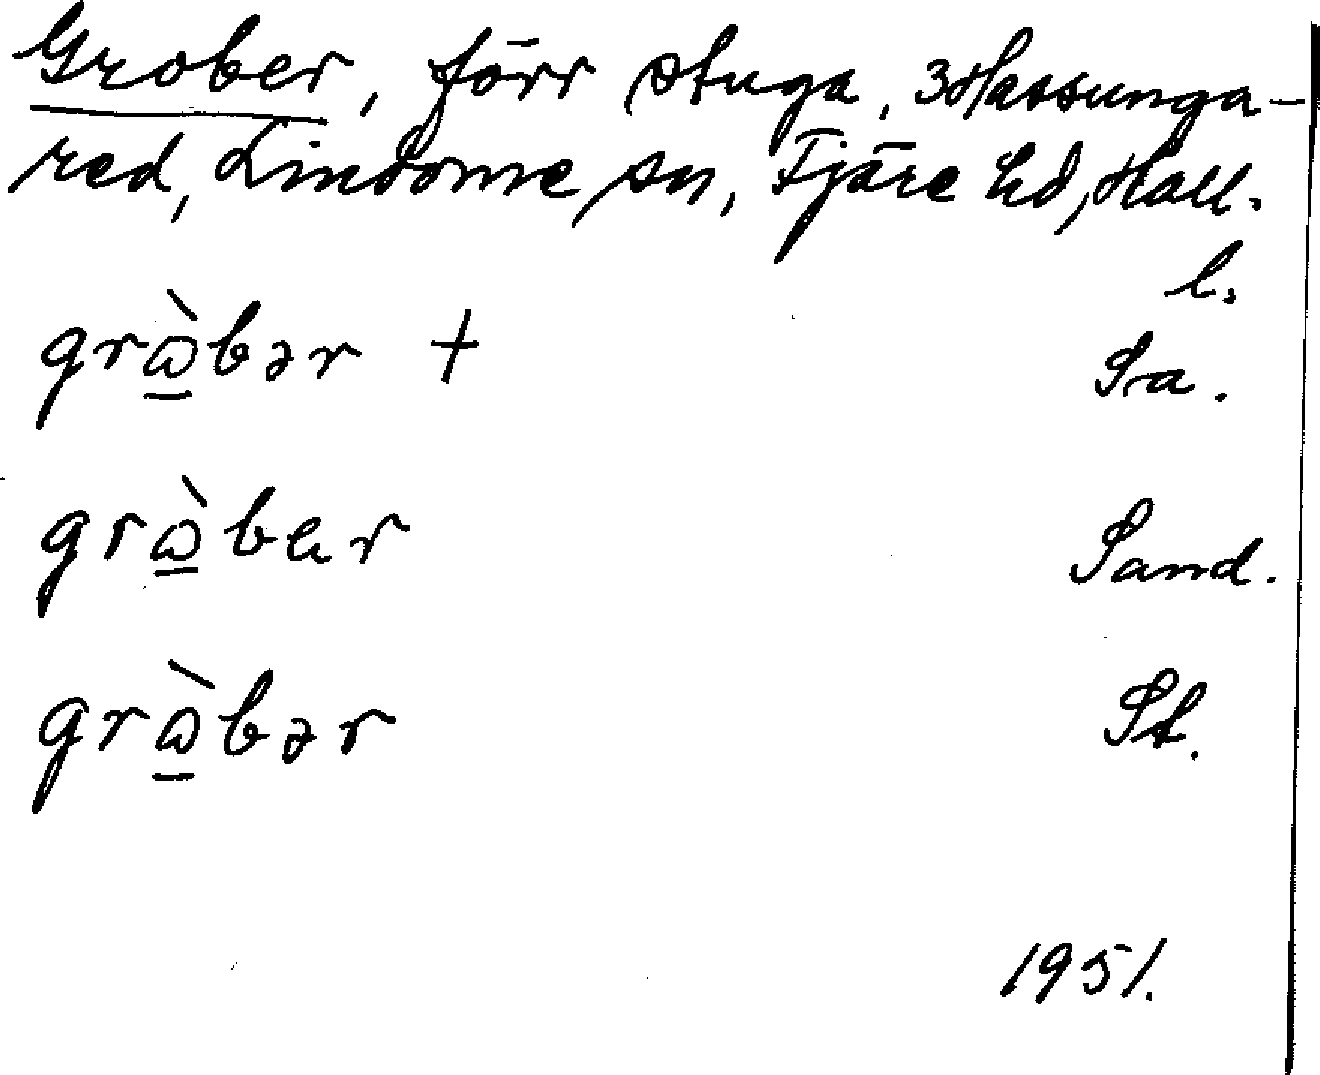 Grober, förr stuga, 3 Hassunga-
red, Lindome sn, Fjäre hd, Hall.
l.
grὼ̲bər + Sa.
grὼ̲bɐr Sand.
grὼ̲bər St.
1951.